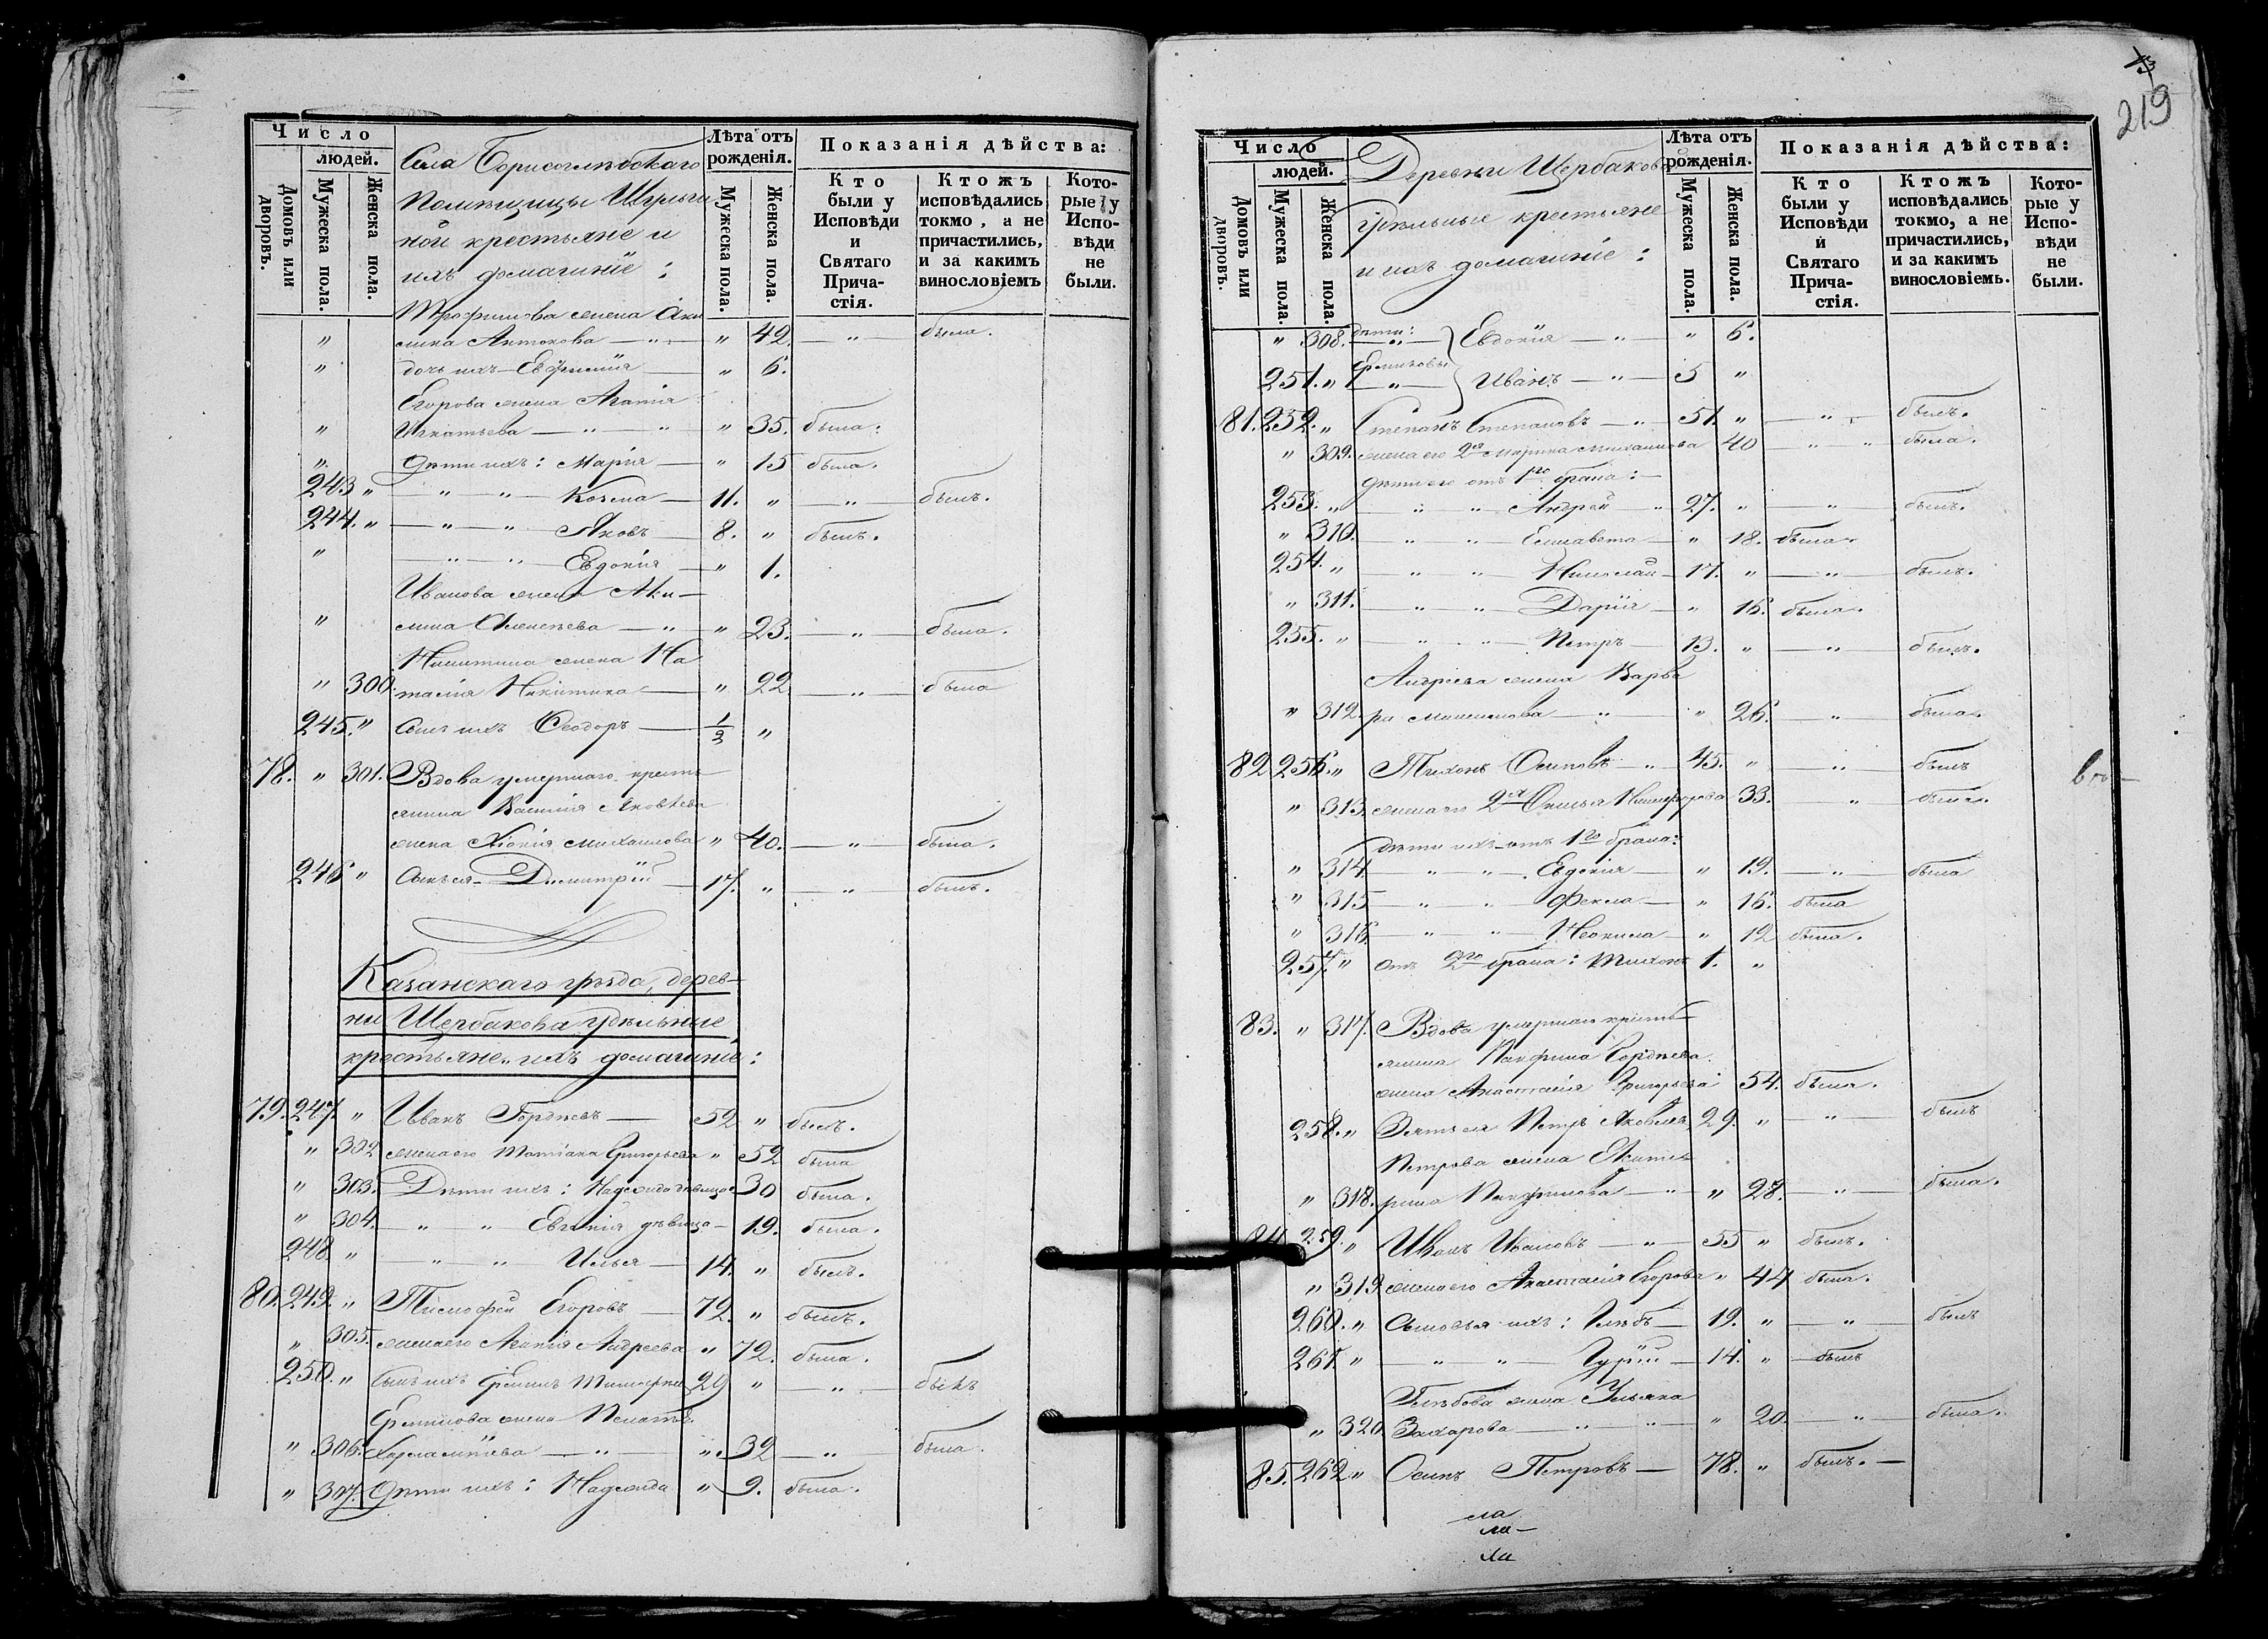 Число
людей.
Домовъ или дворовъ.
Мужеска пола.
Женска пола.
Села Борисоглѣбскаго
Помѣщицы Шульги
ной крестьяне и
ихъ домашніе:
Лѣта отъ рожденія.
Мужеска пола.
Женска пола.
Показанія дѣйства:
Кто были у Исповѣди и Святаго Прича-стія.
Ктожъ исповѣдались токмо, а не причастились, и за какимъ винословіемъ
Кото-рые у Испо-вѣди не были.
Трофимова жена Аку
лина Антонова — " — " 42. — " — была.
" дочь ихъ Евфимія — " 6.
Егорова жена Агатія
" Игнатьева — " — " 35. была.
" Дѣти ихъ: Марія — " 15 была.
243 " — " — " — Козма — 11. " — " — былъ.
244. " — " — " — Яковъ — 8. " былъ.
" — " — " — Евдокія — " 1.
Иванова жена Аку—
" лина Алексѣева — " — " 23. — " — была.
Никитина жена На
" 300. талія Никитина — " 22 — " — была
245. " сынъ ихъ Ѳеодоръ — 1/2 "
78. " 301. Вдова умершаго кресть
янина Василія Яковлева
жена Хіонія Михаилова " 40. — " — была.
246 " Сынъ ея Димитрій — 17. " — " — былъ.
Казанскаго уѣзда, дерев—
ни Щербакова удѣльные
крестьяне и ихъ домашніе:
79. 247. " Иванъ Гордѣевъ — 52 " былъ.
" 302 жена его Татіана Григорьева " 52 была
" 303. Дѣти ихъ: Надежда дѣвица 30 была.
" 304. — " — " Евгенія дѣвица — 19. была.
248 " — " — " — Илья — 14. " былъ.
80. 249. " Тимофей Егоровъ — 72. " былъ.
" 305. жена его Агапія Андреева " 72. была.
250. " Сынъ ихъ Ермилъ Тимофеевъ 29 " — " — былъ
Ермилова жена Пелагѣя
" 306. Харлампіева — " — " 32 — " — была.
" 307. Дѣти ихъ: Надежда " 9. была.
219
Число
людей.
Домовъ или дворовъ.
Мужеска пола.
Женска пола.
Деревни Щербаковъ
Удѣльные крестьяне
и ихъ домашніе:
Лѣта отъ рожденія.
Мужеска пола.
Женска пола.
Показанія дѣйства:
Кто были у Исповѣди и Святаго Прича-стія.
Ктожъ исповѣдались токмо, а не причастились, и за какимъ винословіемъ.
Кото-рые у Испо-вѣди не были.
" 308. дѣти: — " — Евдокія — " — " 6.
251. " Ермиловы — " — Иванъ — " — 5 "
81. 252. " Степанъ Степановъ — " — 51. " — " — былъ.
" 309. жена его 2я Марина Михаилова 40 — " — " была.
Дѣти его отъ 1го брака:
253. " — " — " — Андрей — " 27. " — " — былъ.
" 310. — " — " — Елисавета — " 18. была.
254. " — " — " — Николай — 17. " — " — былъ.
" 311. — " — " — Дарія — " 16. была.
255. " — " — " — Петръ — 13. " — " — былъ.
Андреева жена Варва
" 312. ра — " — " 26. — " — была.
82 256. " Тихонъ Осиповъ — " 45. " — " — былъ
" 313. жена его 2я Никифорова 33. — " — была.
дѣти ихъ отъ 1го брака:
" 314. — " — " — Евдокія — " 19. — " — была
" 315 — " — " — Фекла — " 16. была
" 316. — " — " — Неонила — " 12 была.
257. " Отъ 2го брака: Тихонъ 1. "
83. " 317. Вдова умершаго кресть—
янина Панфила Гордѣева
жена Анастасія Григорьева 54. была.
258. " Зять ея Петръ Яковлевъ 29. " — " — былъ
Петрова жена Екате
" 318. рина Панфилова — " — " 28. — " — была.
84. 259. " Иванъ Ивановъ — " — 55 " былъ.
" 319 жена его Анастасія Егорова " 44 была.
260. " Сыновья ихъ: Глѣбъ — 19. " — " — былъ
261. " — " — " — Гурій — 14. " — былъ
Глѣбова жена Ульяна
" 320. Захарова — " — " " 20. — " — была.
85. 262 " Осипъ Петровъ — 78. " былъ. —
ла
ла —
ла